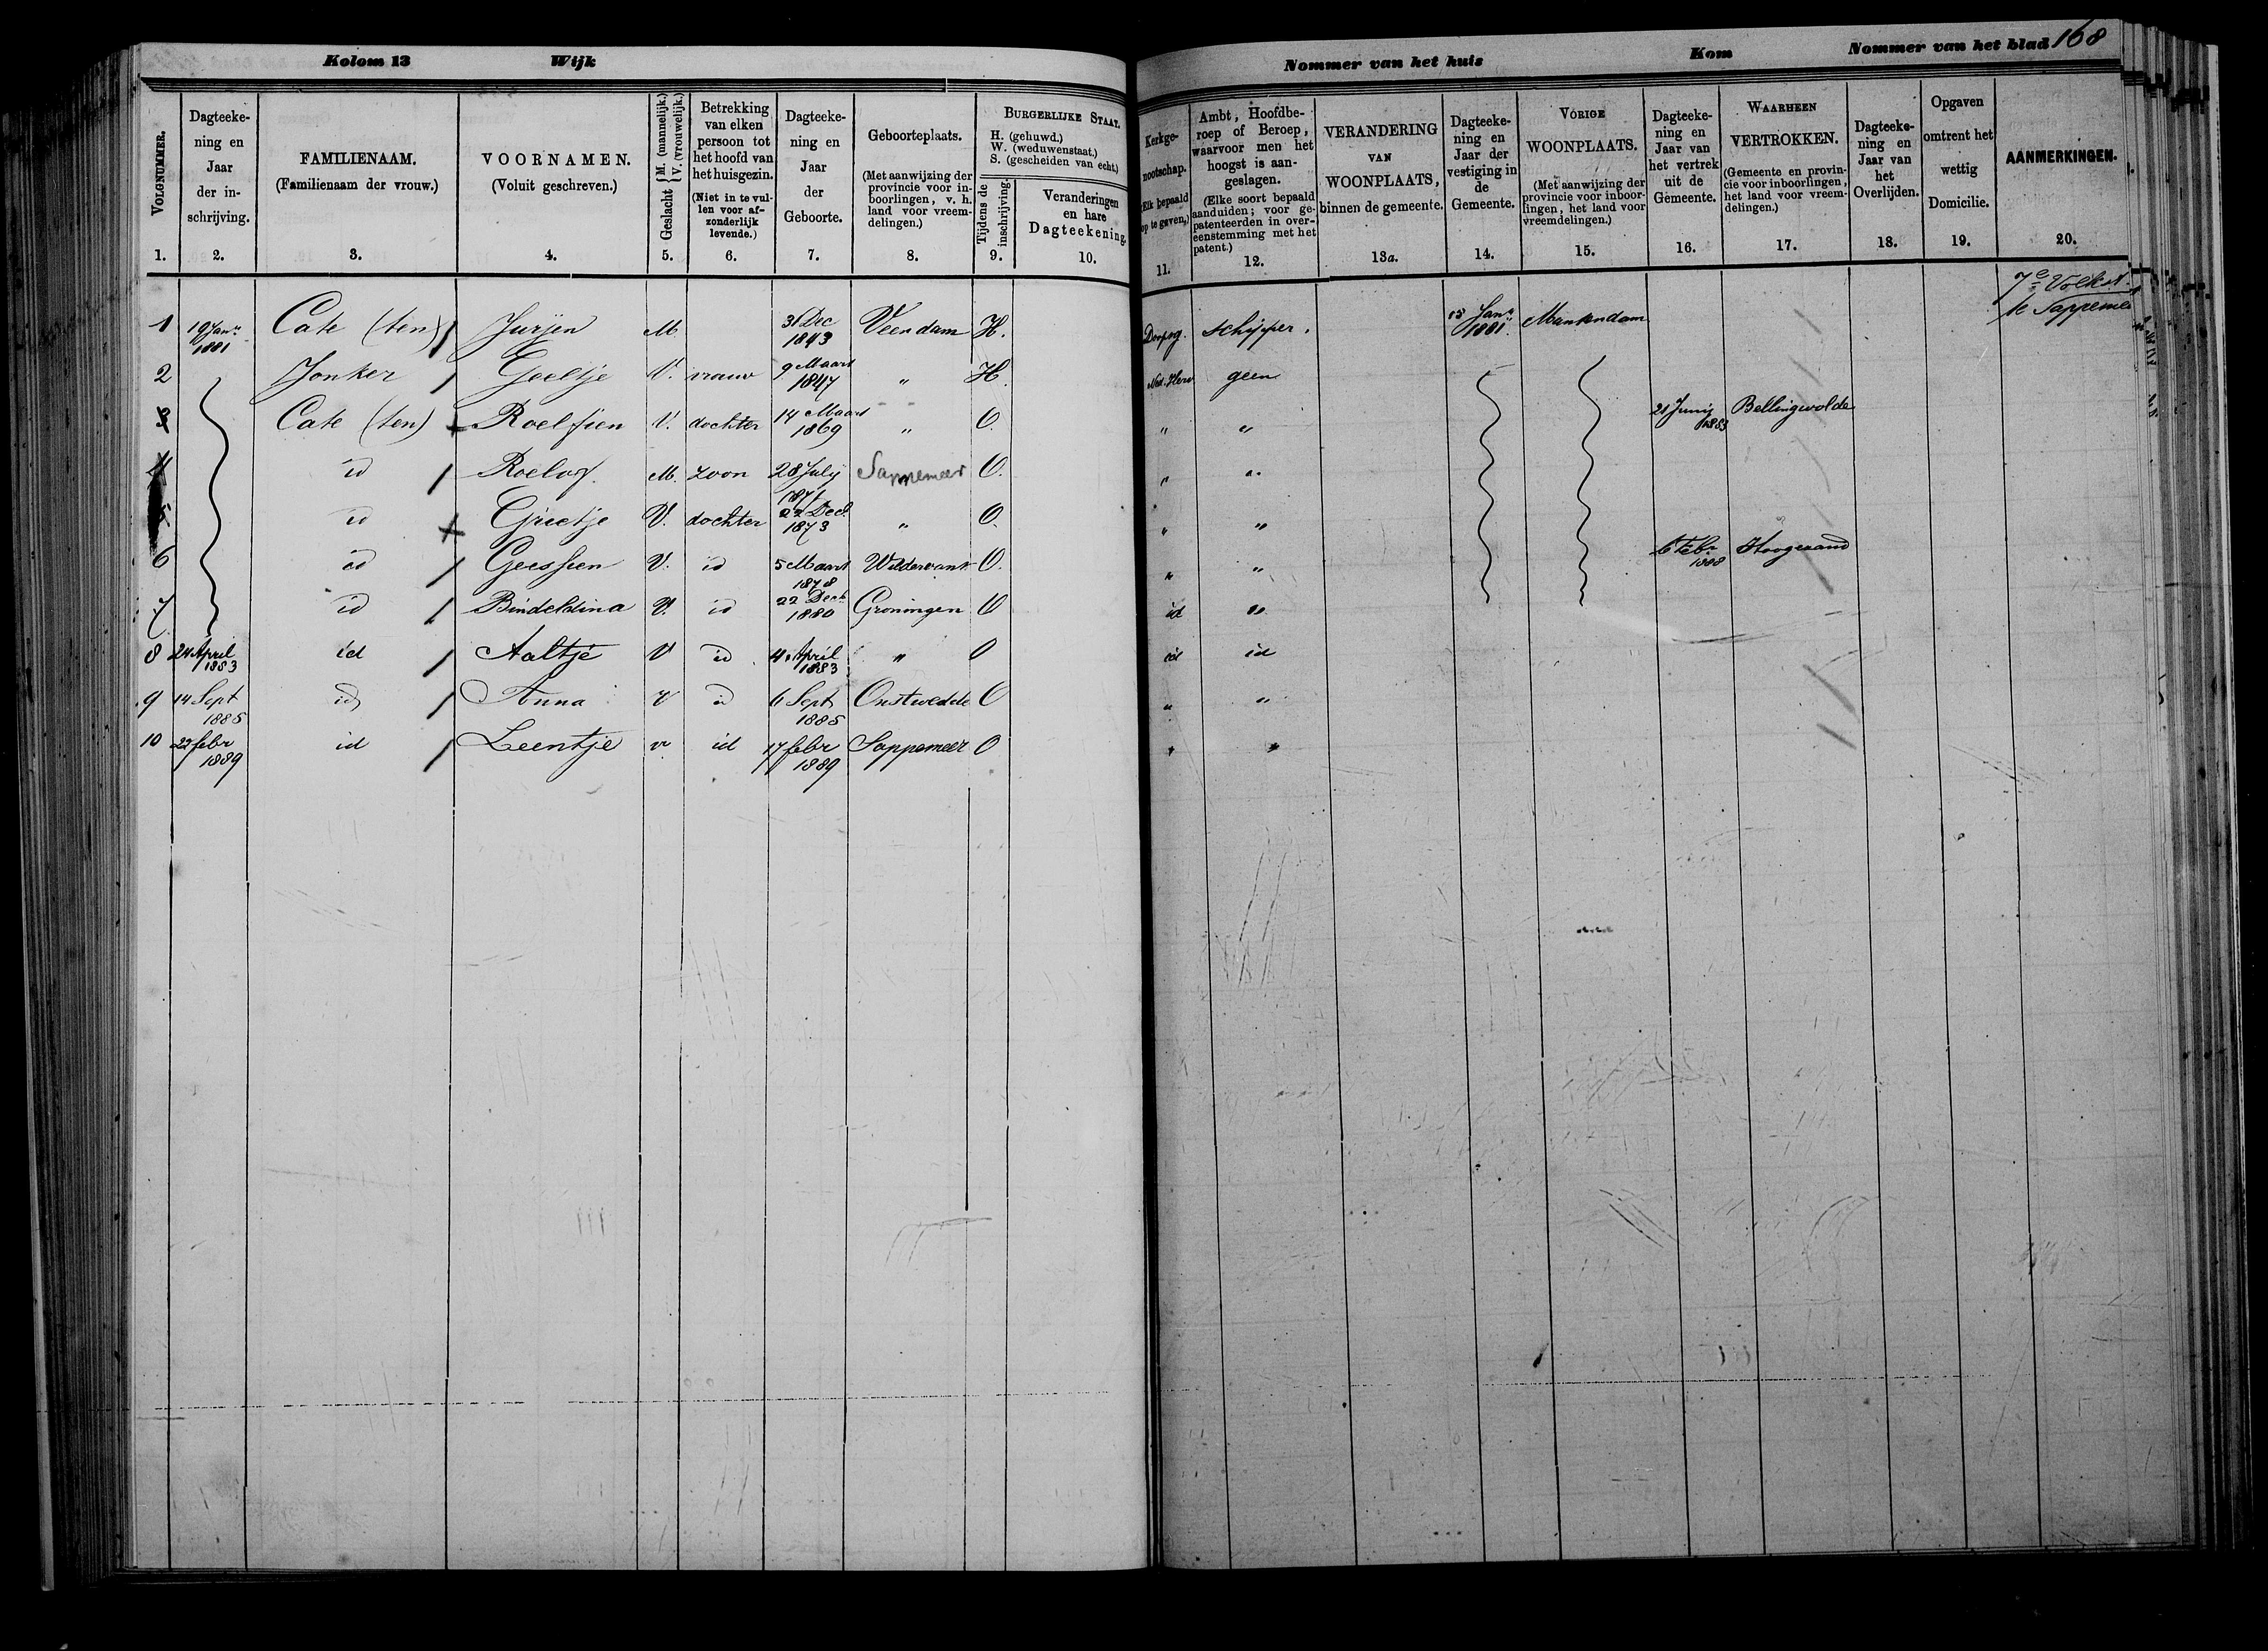 Kolom 13 Wijk Nommer van het huis Kom Nommer van het blad 168
VOLGNUMMER. 1.
Dagteekening en Jaar der inschrijving. 2.
FAMILIENAAM. (Familienaam der vrouw.) 3.
VOORNAMEN. (Voluit geschreven.) 4.
Geslacht M. (mannelijk.) V. (vrouwelijk.) 5.
Betrekking van elken persoon tot het hoofd van het huisgezin. (Niet in te vullen voor afzonderlijk levende.) 6.
Dagteekening en Jaar der Geboorte. 7.
Geboorteplaats. (Met aanwijzing der provincie voor inboorlingen, v. h. land voor vreemdelingen.) 8.
BURGERLIJKE STAAT. H. (gehuwd.) W. (weduwenstaat.) S. (gescheiden van echt.)
Tijdens de inschrijving. 9.
Veranderingen en hare Dagteekening. 10.
Kerkgenootschap. (Elk bepaald op te geven,) 11.
Ambt, Hoofdberoep of Beroep, waarvoor men het hoogst is aangeslagen. (Elke soort bepaald aanduiden; voor gepatenteerden in overeenstemming met het patent.) 12.
VERANDERING VAN WOONPLAATS, binnen de gemeente. 13a.
Dagteekening en Jaar der vestiging in de Gemeente. 14.
VORIGE WOONPLAATS. (Met aanwijzing der provincie voor inboorlingen, het land voor vreemdelingen.) 15.
Dagteekening en Jaar van het vertrek uit de Gemeente. 16.
WAARHEEN VERTROKKEN. (Gemeente en provincie voor inboorlingen, het land voor vreemdelingen.) 17.
Dagteekening en Jaar van het Overlijden. 18.
Opgaven omtrent het wettig Domicilie. 19.
AANMERKINGEN. 20.
7e Volkst.
te Sappemeer
1 19 Janr 1881 Cate (ten) Jurjen M. 31 Dec 1843 Veendam H. Doopsg. schipper. 15 Janr 1881 Muntendam
2 Jonker Geeltje V. vrouw 9 Maart 1847 " H. Ned. Herv geen
3 Cate (ten) Roelfien V. dochter 14 Maart 1869 " O. " " 21 Junij 1883 Bellingwolde
4 id Roelof M. zoon 28 July 1871 Sappemeer O. " "
5 id Grietje V. dochter 22 Dec. 1873 " O. " "
6 id Geessien V. id 5 Maart 1878 Wildervank O. " " 6 Febr 1888 Hoogezand
7 id Bindeldina V. id 22 Decb 1880 Groningen O id "
8 24 April 1883 id Aaltje V id 4 April 1883 " O id id
9 14 Sept 1885 id Anna V id 6 Sept 1885 Onstwedde O " "
10 22 febr 1889 id Leentje v id 17 febr 1889 Sappemeer O " "